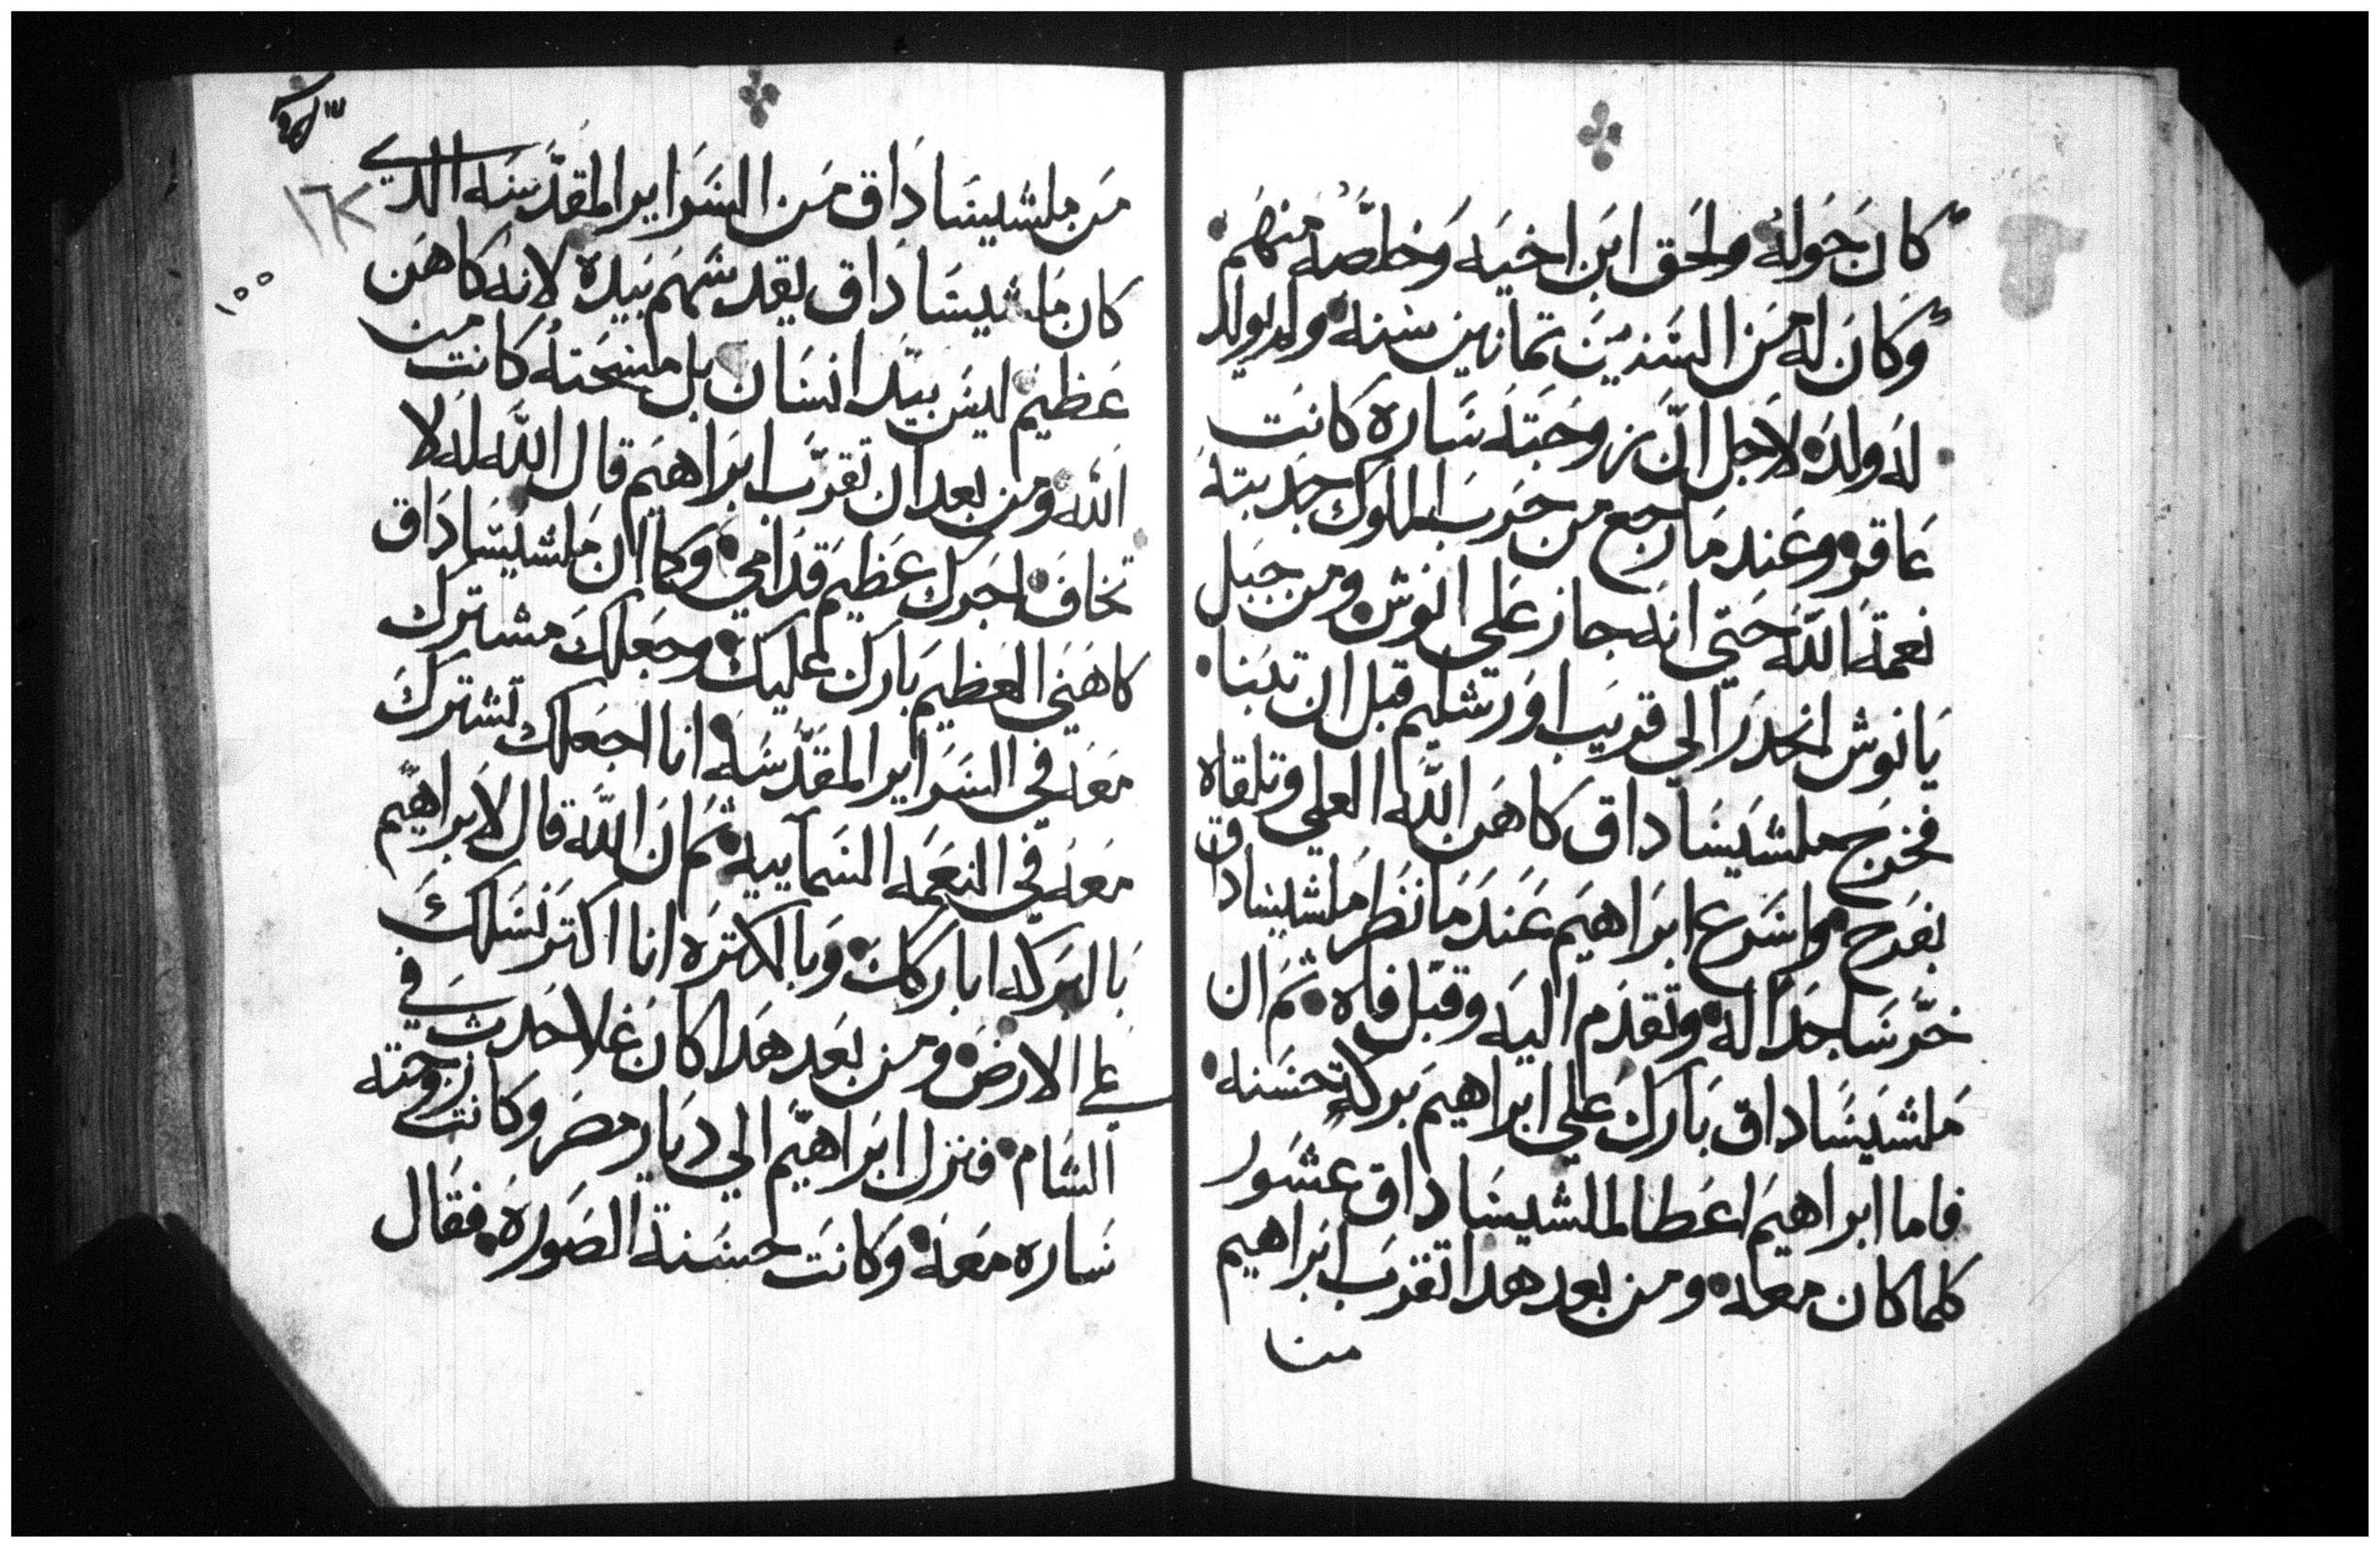 كان حوله ولحق ابن اخيه وخلصه منهم
وكان له من السنين تمانين سنه ولم يولد
له ولد لاجل ان زوجته ساره كانت
عاقره وعند ما رجع من حرب الملوك جدبته
نعمة الله حتى انه جاز على انوش ومن جبل
يانوش انحدر الي قريب اورشليم قبل ان تبنا
فخرج ملشيساداق كاهن الله العلي وتلقاه
بفرح واسرع ابراهيم عند ما نظر ملشيساداق
خر ساجدا له وتقدم اليه وقبل فاه ثم ان
ملشيساداق بارك علي ابراهيم بركة حسنه
فاما ابراهيم اعطا لملشيساداق عشور
كلما كان معه ومن بعد هدا تقرب ابراهيم
من
من ملشيساداق من السراير المقدسه الدي
كان ملشيساداق يقدسهم بيده لانه كاهن
عظيم ليس بيد انسان بل مسحته كانت من
الله ومن بعد ان تقرب ابراهيم قال الله له لا
تخاف اجرك عظيم قدامي وكما ان ملشيساداق
كاهني العظيم بارك عليك وجعلك مشترك
معه في السراير المقدسه انا اجعلك تشترك
معه في النعمه السماييه ثم ان الله قال لابراهيم
بالبركه اباركك وبالكتره انا اكتر نسلك
علي الارض ومن بعد هدا كان غلا حدث في
الشام فنزل ابراهيم الي ديار مصر وكانت زوجته
ساره معه وكانت حسنة الصوره فقال
١٠٠